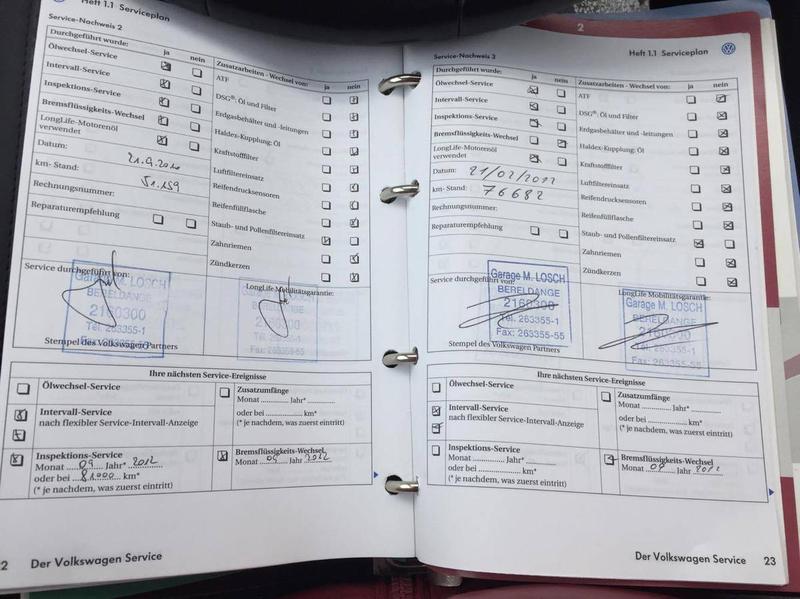 Heft 1.1 Serviceplan
Service-Nachweis 2
Durchgeführt wurde: ja nein
Ölwechsel-Service
Intervall-Service
Inspektions-Service
Bremsflüssigkeits-Wechsel
LongLife-Motorenöl
verwendet
Datum: 21.9.2010
km- Stand: 51.159
Rechnungsnummer:
Reparaturempfehlung
Zusatzarbeiten - Wechsel von: ja nein
ATF
DSG®: Öl und Filter
Erdgasbehälter und -leitungen
Haldex-Kupplung: Öl
Kraftstofffilter
Luftfiltereinsatz
Reifendrucksensoren
Reifenfüllflasche
Staub- und Pollenfiltereinsatz
Zahnriemen
Zündkerzen
Service durchgeführt von:
Garage M. LOSCH
BERELDANGE
2160300
Tél. 263355-1
Stempel des Volkswagen Partners
LongLife Mobilitätsgarantie:
Garage M. LOSCH
BERELDANGE
2160300
Tél. 263355-1
Fax: 263355-55
Ihre nächsten Service-Ereignisse
Ölwechsel-Service
Intervall-Service
nach flexibler Service-Intervall-Anzeige
Inspektions-Service
Monat 09 Jahr* 2012
oder bei 81000 km*
(* je nachdem, was zuerst eintritt)
Zusatzumfänge
Monat Jahr*
oder bei km*
(* je nachdem, was zuerst eintritt)
Bremsflüssigkeits-Wechsel
Monat 09 Jahr 2012
2 Der Volkswagen Service
2
Service-Nachweis 3
Heft 1.1 Serviceplan
Durchgeführt wurde: ja nein
Ölwechsel-Service
Intervall-Service
Inspektions-Service
Bremsflüssigkeits-Wechsel
LongLife-Motorenöl
verwendet
Datum: 21/02/2012
km- Stand: 76682
Rechnungsnummer:
Reparaturempfehlung
Zusatzarbeiten - Wechsel von: ja nein
ATF
DSG®: Öl und Filter
Erdgasbehälter und -leitungen
Haldex-Kupplung: Öl
Kraftstofffilter
Luftfiltereinsatz
Reifendrucksensoren
Reifenfüllflasche
Staub- und Pollenfiltereinsatz
Zahnriemen
Zündkerzen
Service durchgeführt von:
Garage M. LOSCH
BERELDANGE
2160300
Tél. 263355-1
Fax: 263355-55
Stempel des Volkswagen Partners
LongLife Mobilitätsgarantie:
Garage M. LOSCH
BERELDANGE
2160300
Tél. 263355-1
Fax: 263355-55
Ihre nächsten Service-Ereignisse
Ölwechsel-Service
Intervall-Service
nach flexibler Service-Intervall-Anzeige
Inspektions-Service
Monat Jahr*
oder bei km*
(* je nachdem, was zuerst eintritt)
Zusatzumfänge
Monat Jahr*
oder bei km*
(* je nachdem, was zuerst eintritt)
Bremsflüssigkeits-Wechsel
Monat 09 Jahr 2012
Der Volkswagen Service 23